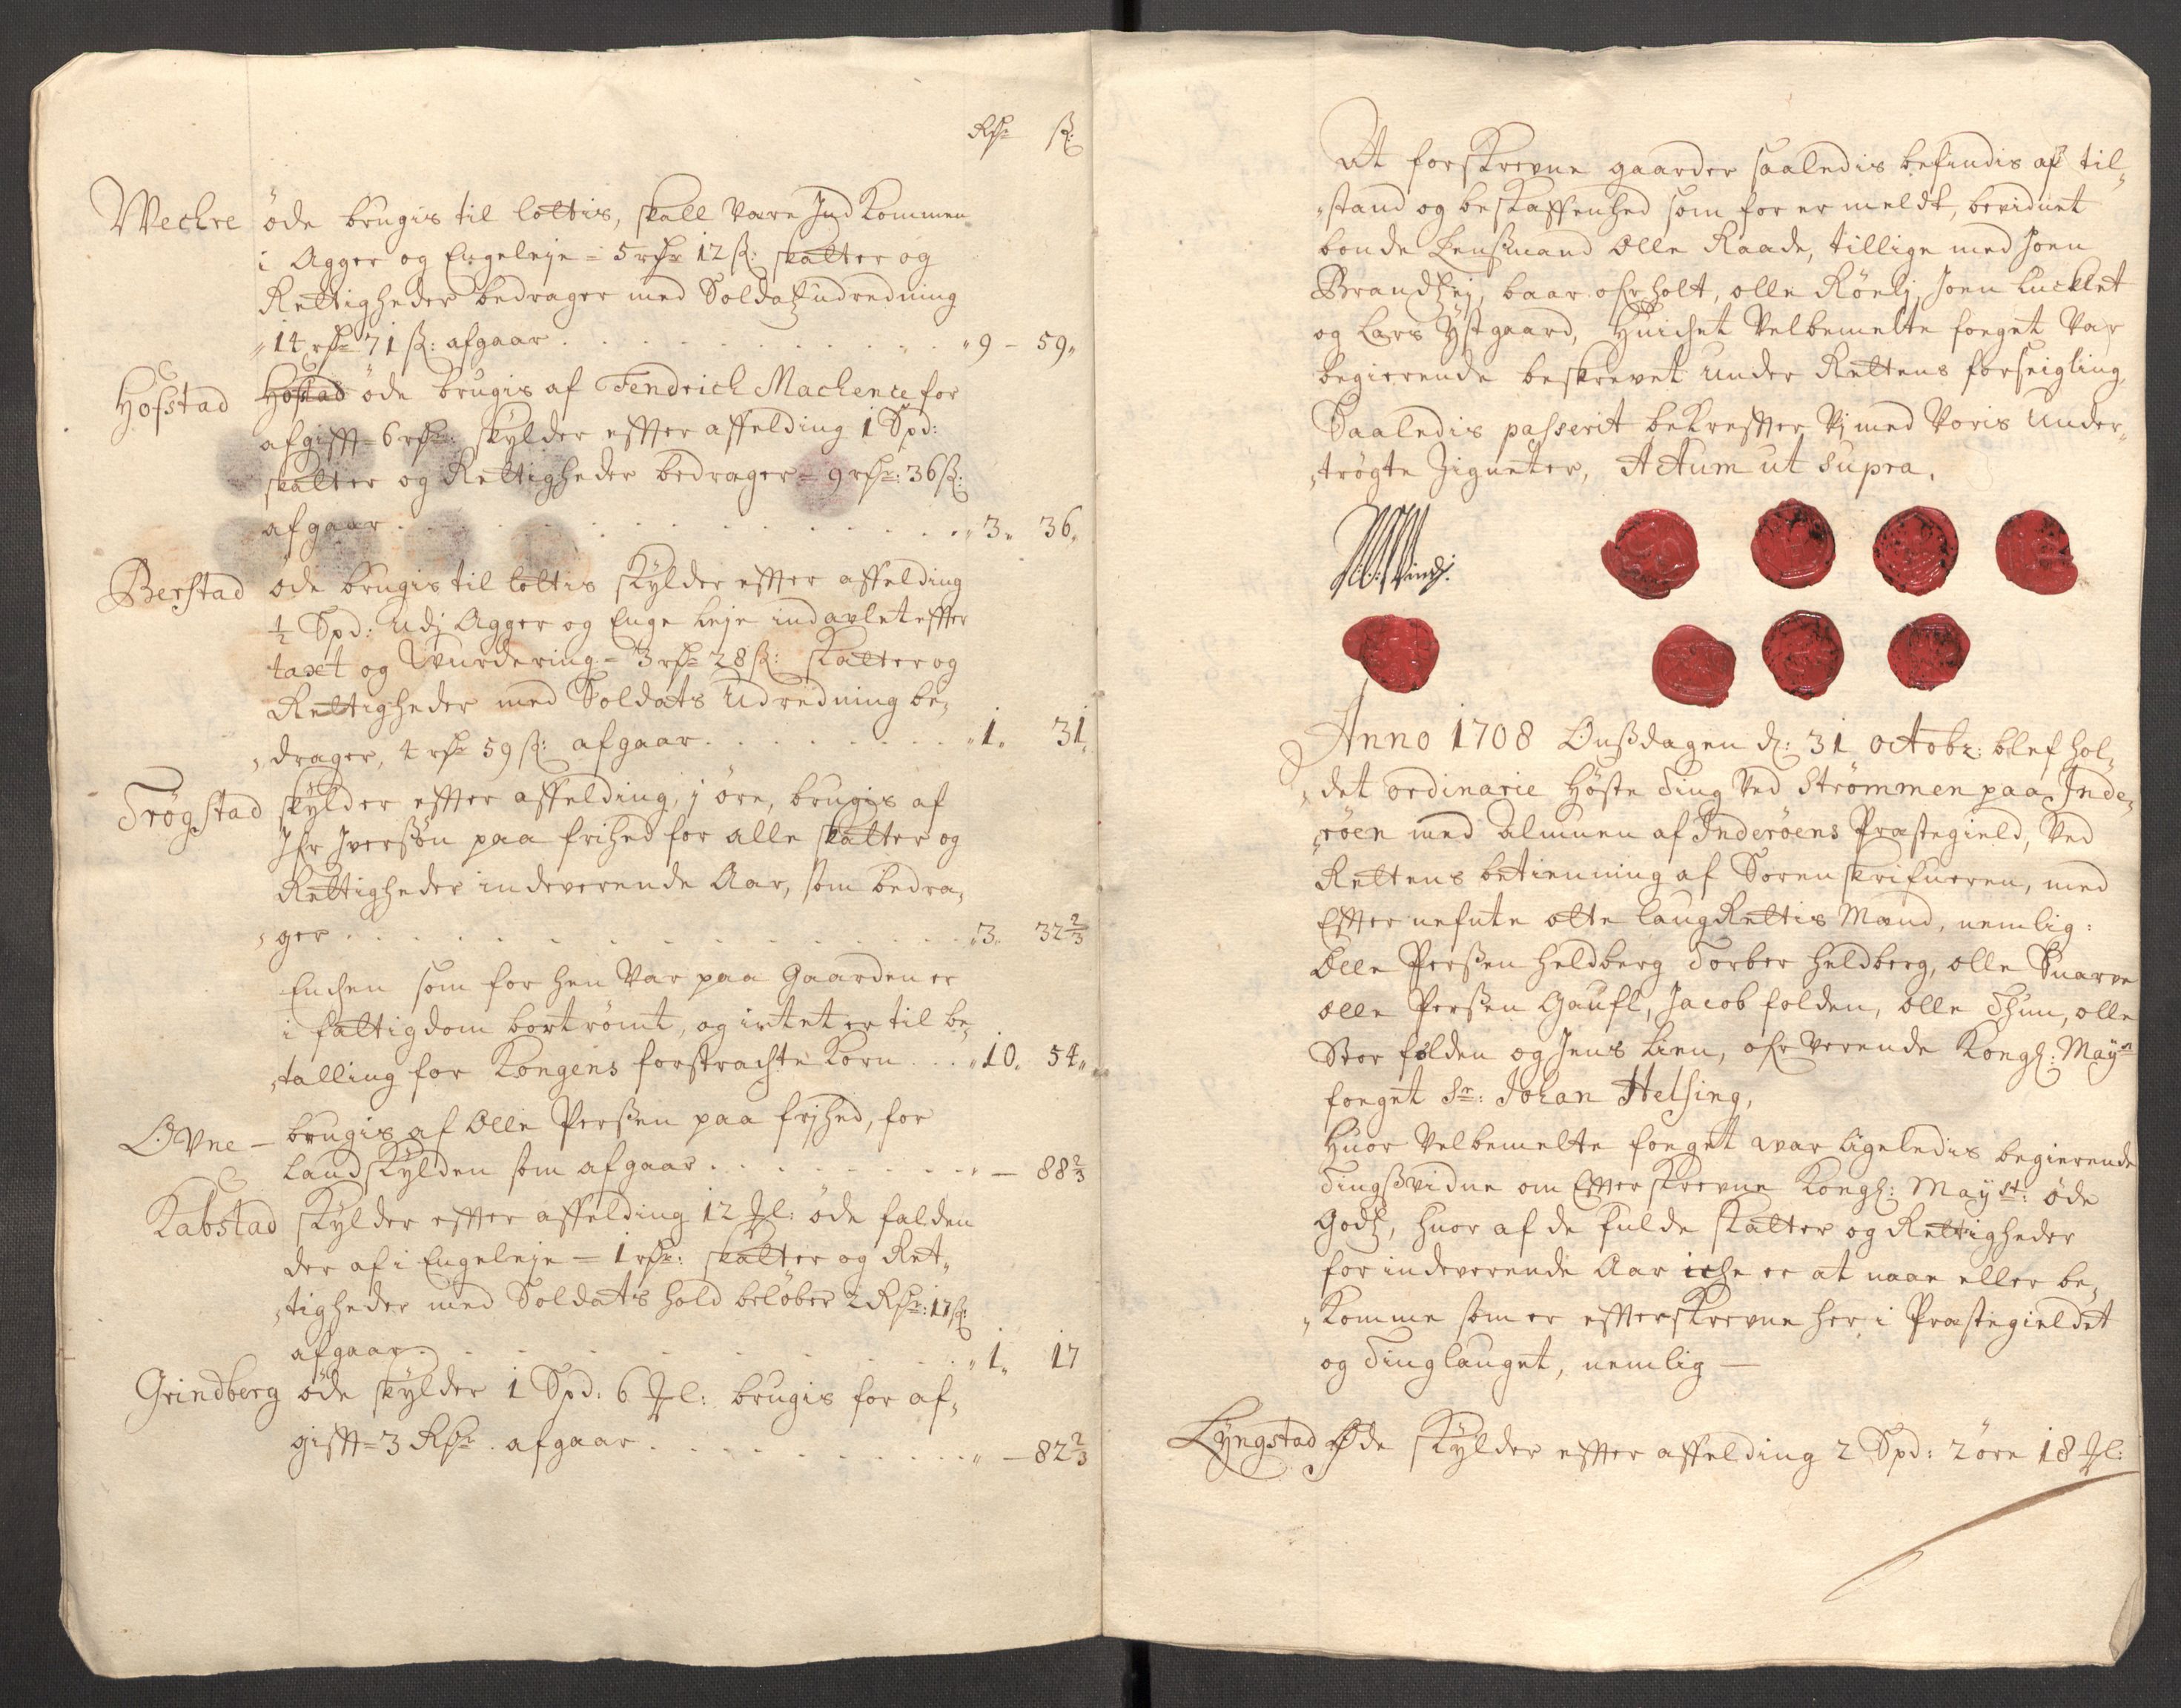 Rdr ß:
Wechre öde brugis til lottis, skall Være Ind Kommen
i Agger og Engeleje = 5 rdr 12 ß: skatter og
Rettigheder bedrager med Soldatz udredning
14 rdr 71 ß: afgaar . . . . . . . . . . „ 9 – 59„
Hofstad Hofstad öde brugis af Fendrich Machence for
afgifft = 6 rdr: skylder effter affelding 1 Spd:
skatter og Rettigheder bedrager = 9 rdr: 36 ß:
afgaar . . . . . . . . . . „ 3„ 36„
Berstad öde brugis til lottis skylder effter affelding
½ Spd: Udj Agger og Enge Leje indavlet effter
taxt og Wurdering = 3 rdr 28 ß: skatter og
Rettigheder med Soldats Udredning be„
„drager, 4 rdr 59 ß: afgaar . . . . . . . „ 1„ 31„
Trögstad skylder effter affelding, j öre, brugis af
Ifr Iversön paa frihed for alle skatter og
Rettigheder indeverende Aar, som bedra„
„ger . . . . . . . . . . „ 3„ 32⅔
Enchen som for hen Var paa Gaarden er
i fattigdom bortrömt, og intet er til be„
„talling for Kongens forstrachte Korn . . . „ 10„ 54„
Ovne – brugis af Olle Perßen paa frjhed, for
Landskylden som afgaar . . . . . . . „ – 88⅔
Kabstad skylder effter affelding 12 Jl: öde falden
der af i Engeleje = 1 rdr: skatter og Ret„
„tigheder med Soldats hold belöber 2 Rdr: 17 ß:
afgaar . . . . . . . . . „ 1„ 17
Grindberg öde skylder 1 Spd: 6 Jl: brugis for af„
gifft = 3 Rdr. afgaar . . . . . . . . „ – 82⅔
At forskrevne gaarder saaledis befindis af til„
„stand og beskaffenhed som for er meldt, bevidnet
bonde Lensmand Olle Raade, tillige med Joen
Brandtzej, baar ohrholt, olle Rönlj, Joen Lucklet
og Lars Ystgaard, Huichet Velbemelte foeget Var
begierende beskrevet Under Rettens forseigling,
Saaledis passerit bekreffter Vj med Voris Under„
„trögte Zigneter, Actum ut supra,
Anno 1708 Onßdagen d: 31 octobr: blef hol„
„det ordinarie Höste Ting Ved Strömmen paa Inde„
„röen med Almuen af Inderöens Præstegield, Ved
Rettens betienning af Sorenskrifueren, med
Effter nefnte otte laugRettis Mænd, nemlig:
Olle Perßen Heldberg Torber Heldberg, olle Snarve
olle Perßen Gaufl, Jacob folden, olle Thun, olle
Stor folden og Jens Lien, ofr Verende Kongl: Mayts
foeget Sr: Johan Helsing,
Huor Velbemelte foeget war ligeledis begierende
Tingsvidne om Effterskrevne Kongl: Mayst: öde
Godtz, huor af de fulde skatter og Rettigheder
for indeverende Aar iche er at naae eller be„
„komme som er effterskrevne her i Præstegieldet
og Tinglauget, nemlig –
Lyngstad Öde skylder effter affelding 2 Spd: 2 öre 18 Jl: